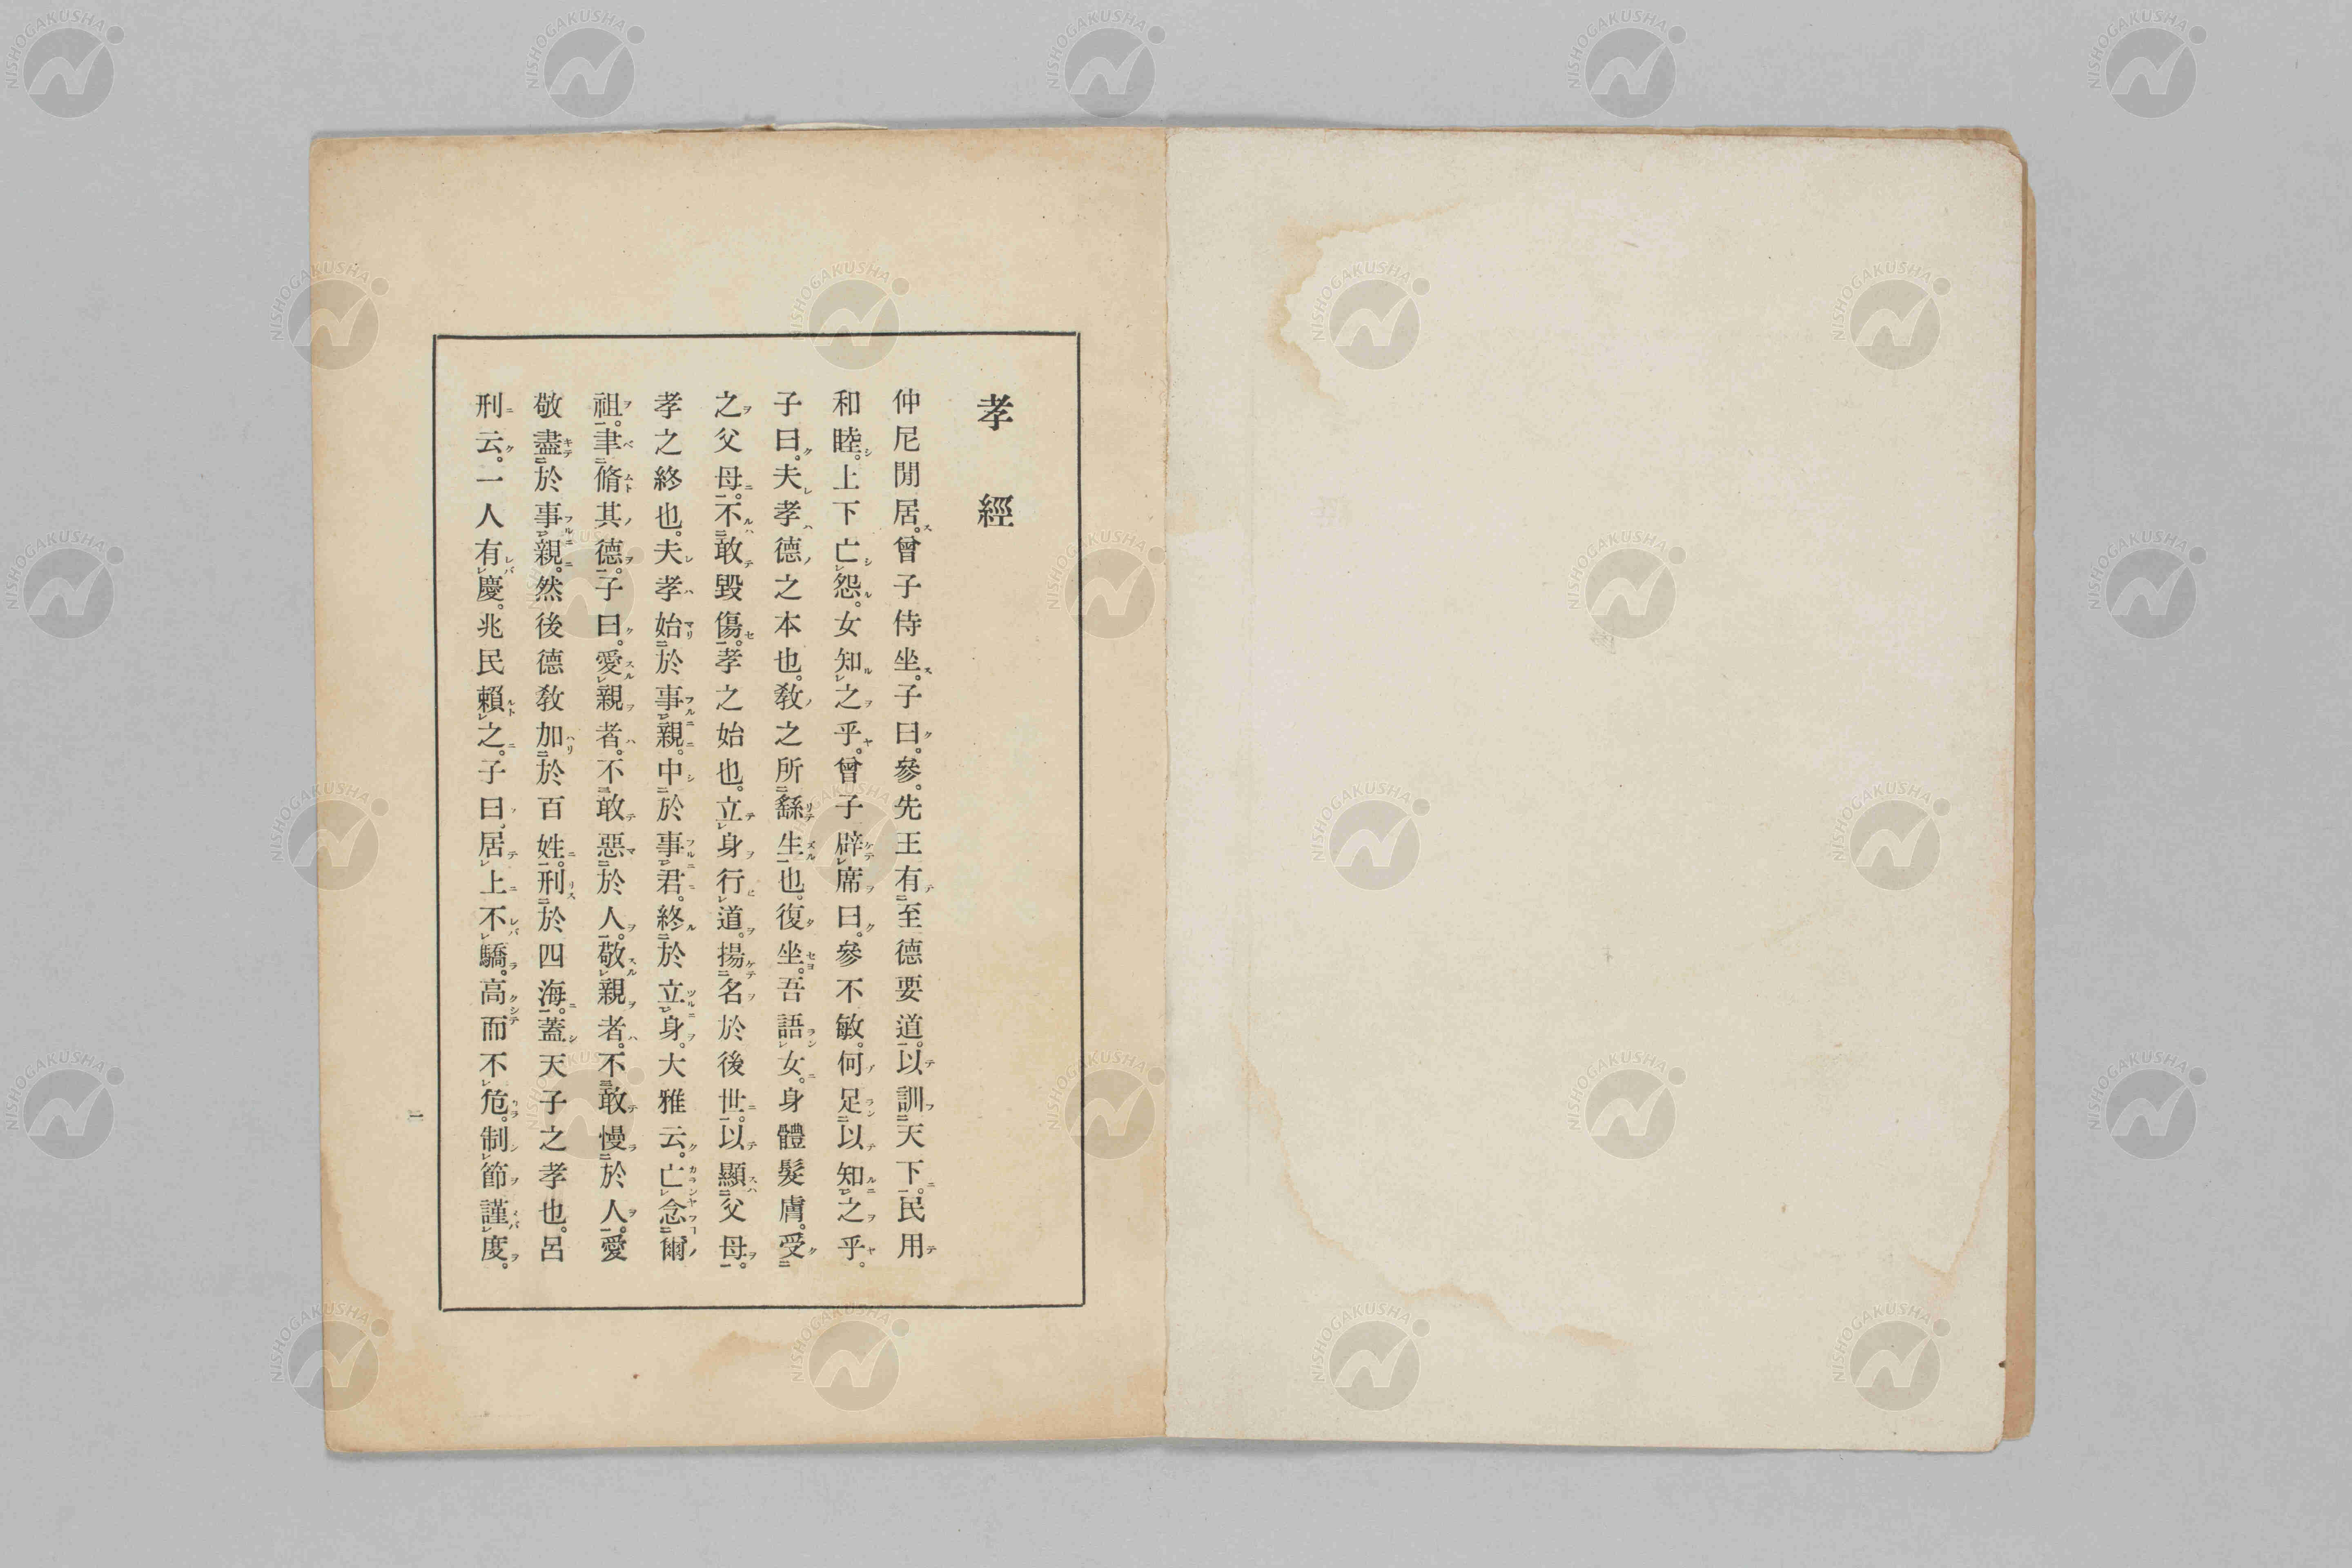 孝經
仲尼閒居。曾子侍坐。子曰。參。先王有至德要道。以訓天下。民用
和睦。上下亡怨。女知之乎。曾子辟席曰。參不敏。何足以知之乎。
子曰。夫孝德之本也。敎之所繇生也。復坐。吾語女。身體髮膚。受
之父母。不敢毀傷。孝之始也。立身行道。揚名於後世。以顯父母。
孝之終也。夫孝始於事親。中於事君。終於立身。大雅云。亡念爾
祖。聿脩其德。子曰。愛親者。不敢惡於人。敬親者。不敢慢於人。愛
敬盡於事親。然後德敎加於百姓。刑於四海。蓋天子之孝也。呂
刑云。一人有慶。兆民賴之。子曰。居上不驕。高而不危。制節謹度。
一
NISHOGAKUSHA